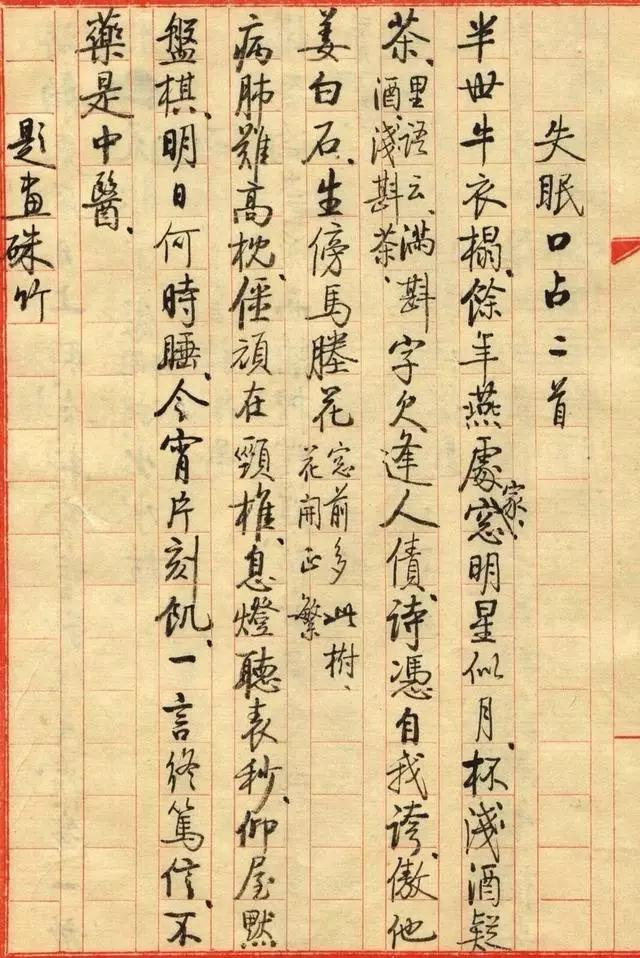 失眠口占二首
半世牛衣榻、餘年燕處窓家、明星似月、杯淺酒疑
茶、里語云、滿斟酒、淺斟茶、字欠逢人債、詩憑自我誇、傲他
姜白石、生傍馬塍花窓前多此樹、花開正繁
病肺難高枕、僵頑在頸椎、息燈聽表秒、仰屋默
盤棋、明日何時睡、今宵片刻飢、一言終篤信、不
藥是中醫、
題畫硃竹